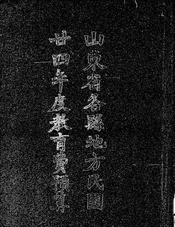 山東省各縣地方民國
廿四年度教育費預算